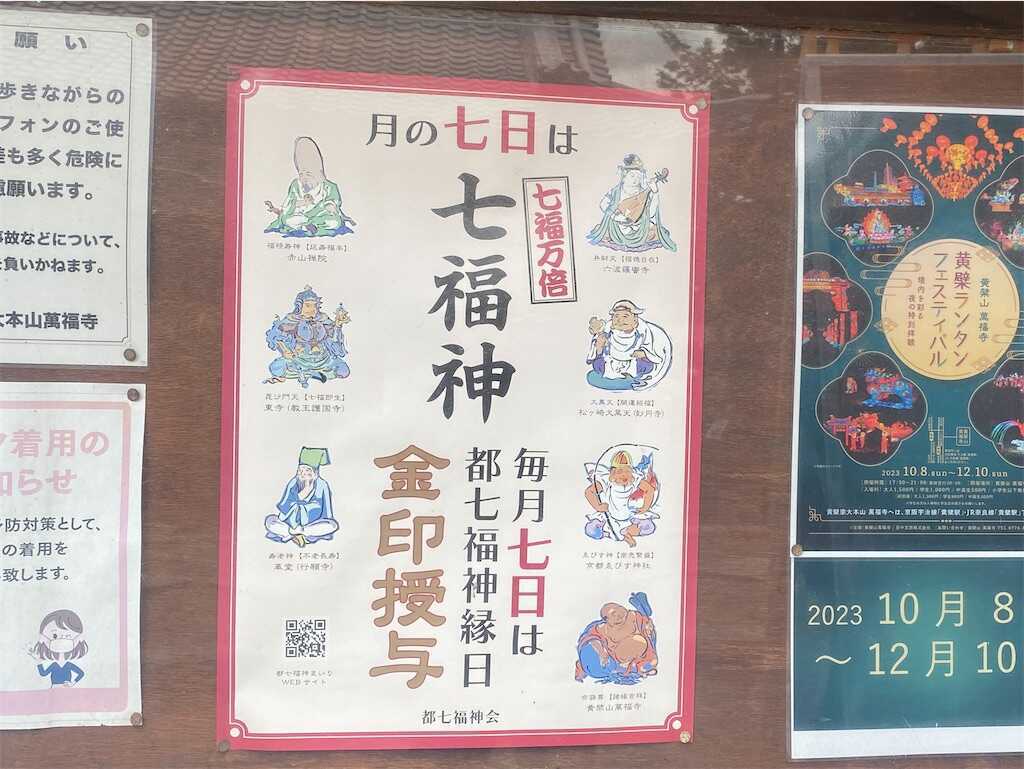 願い
歩きながらの
フォンのご使
も多く危険に
慮願います。
事故などについて、
負いかねます。
大本山萬福寺
着用の
知らせ
予防対策として、
の着用を
致します。
月の七日は
七福神
七福万倍
毎月七日は
都七福神縁日
金印授与
福禄寿神【延寿福楽】
赤山禅院
毘沙門天【七福即生】
東寺(教王護国寺)
寿老神【不老長寿】
革堂(行願寺)
都七福神まいり
WEBサイト
弁財天【福徳自在】
六波羅蜜寺
大黒天【開運招福】
松ヶ崎大黒天(妙円寺)
ゑびす神【商売繁盛】
京都ゑびす神社
布袋尊【諸縁吉祥】
黄檗山萬福寺
都七福神会
黄檗山 萬福寺
黄檗ランタン
フェスティバル
境内を彩る
夜の特別拝観
2023 10.8.sun~12.10.sun
黄檗宗大本山 萬福寺へは、京阪宇治線「黄檗駅」・JR奈良線「黄檗駅」
2023 10月8
~12月10